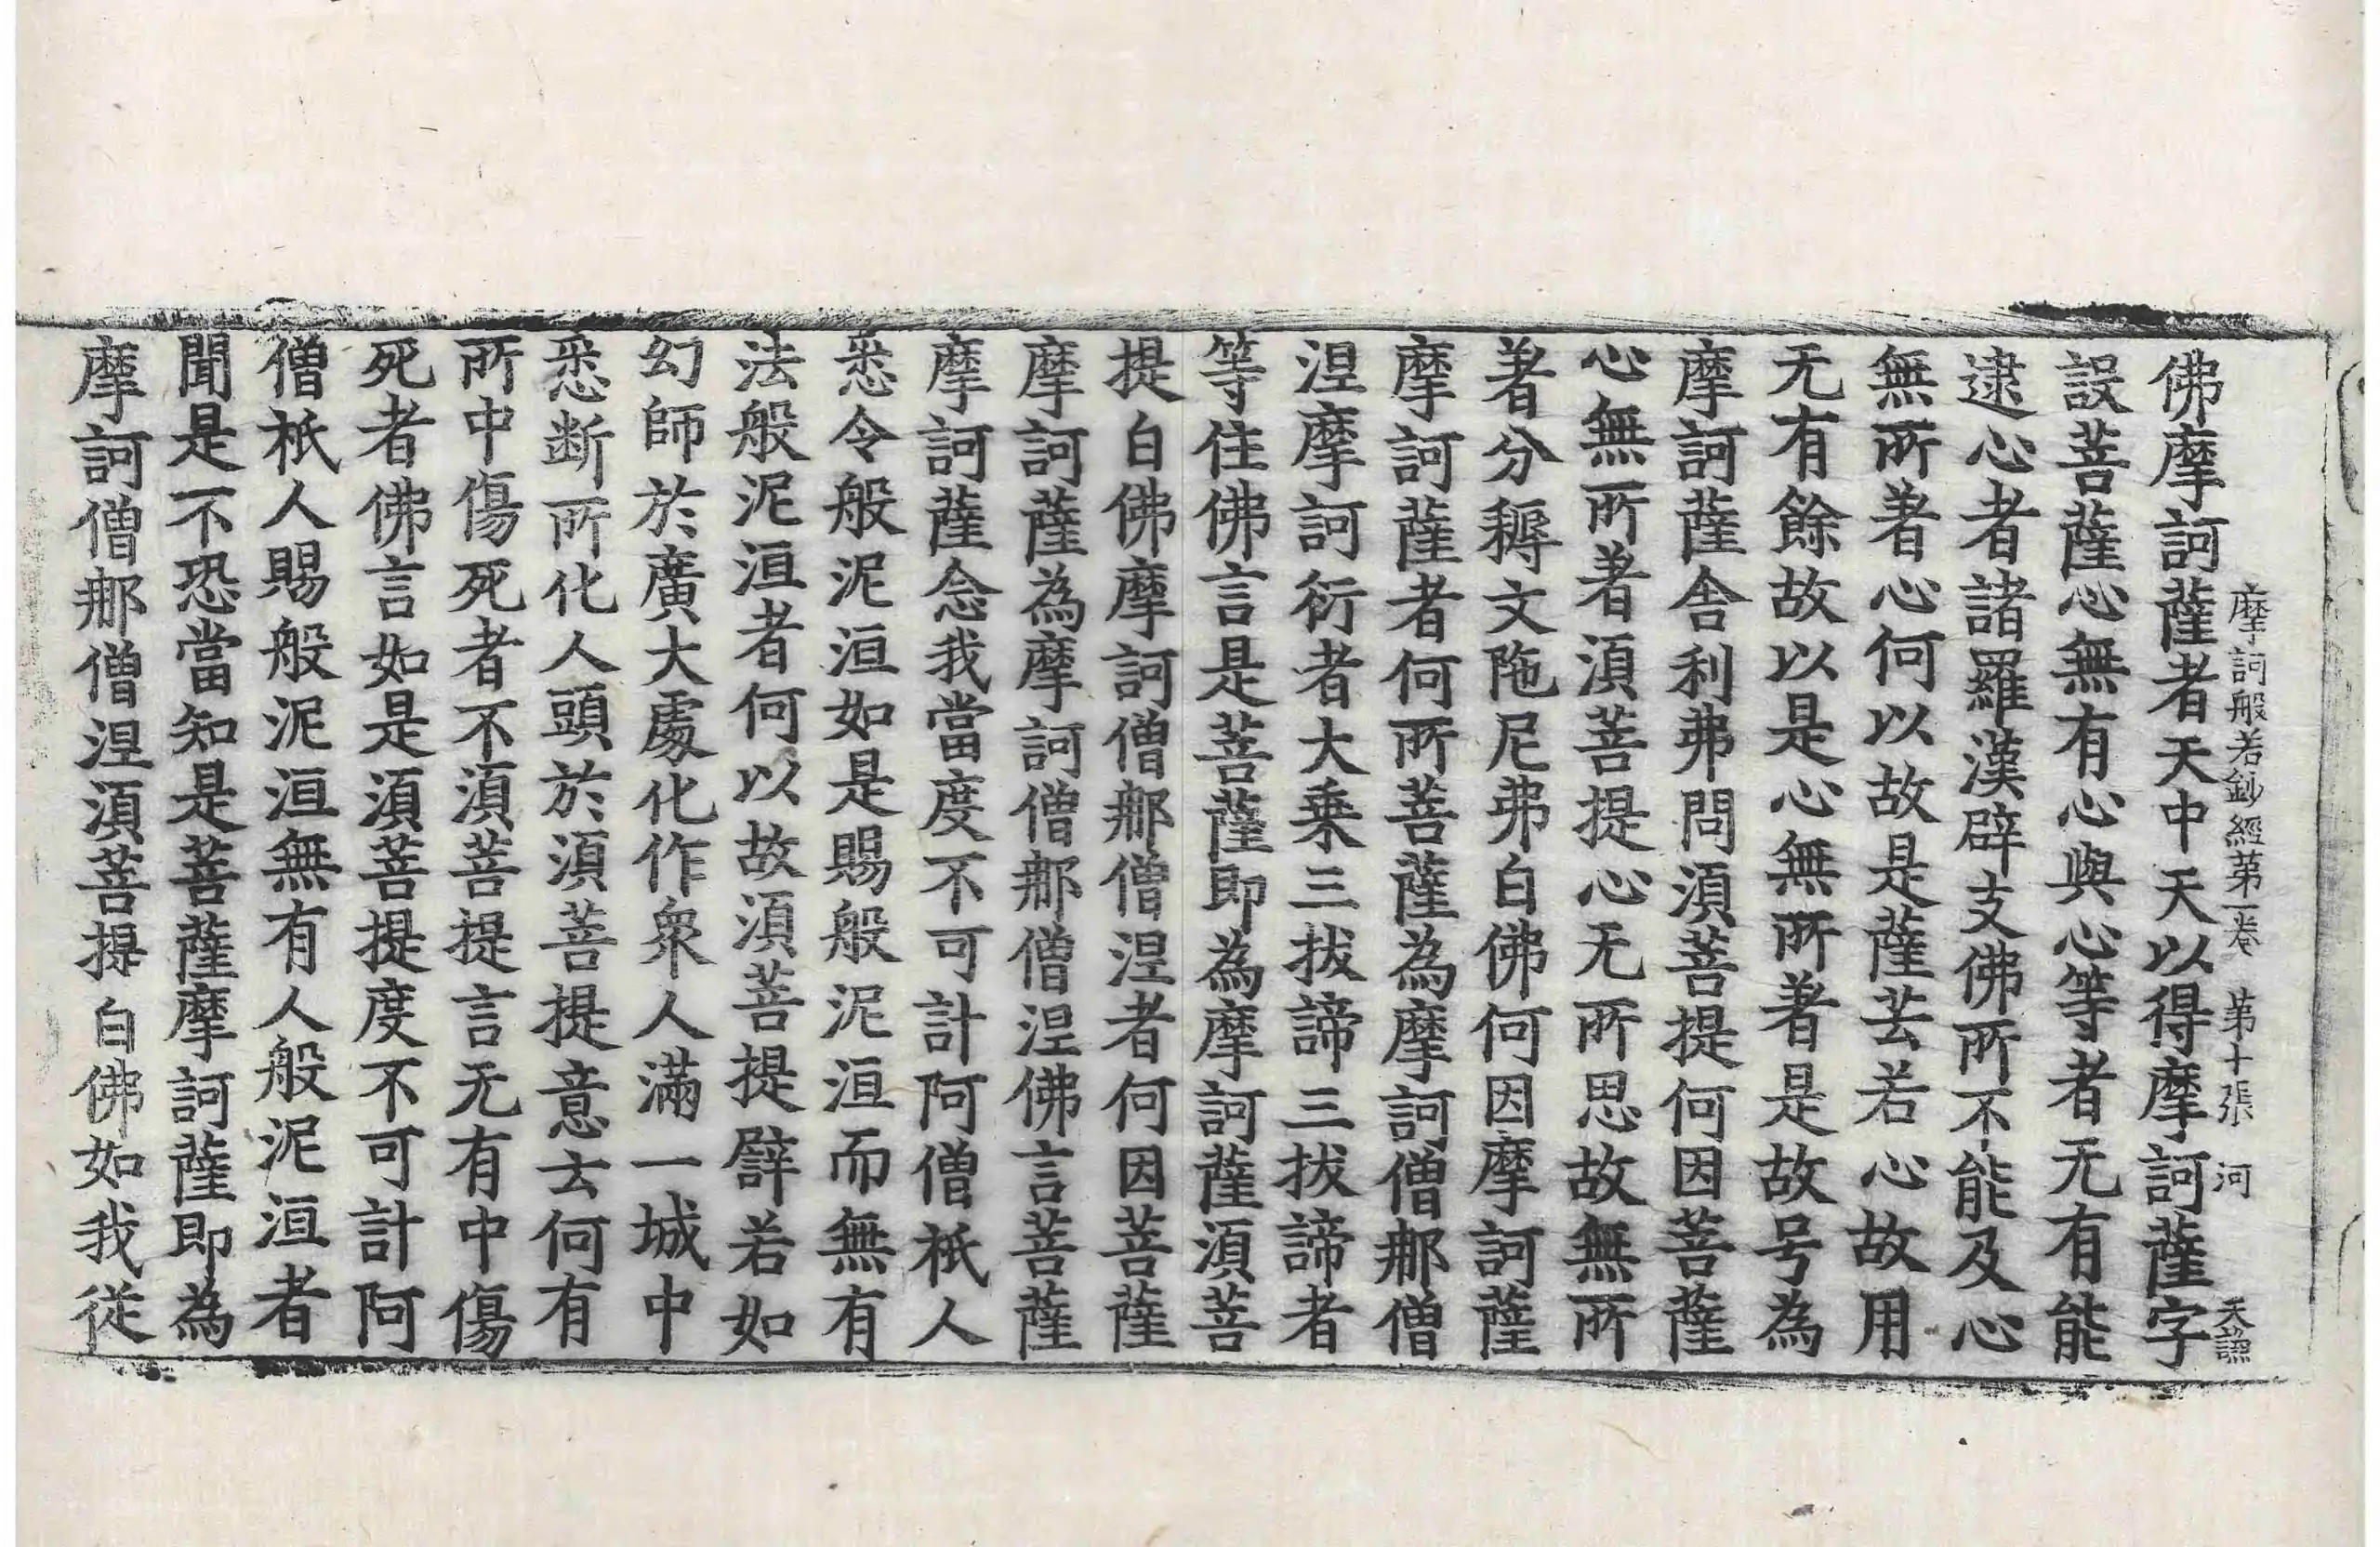 摩訶般若鈔經第一卷 第十張 河 天諭
佛摩訶薩者天中天以得摩訶薩字
設菩薩心無有心與心等者无有能
逮心者諸羅漢辟支佛所不能及心
無所著心何以故是薩芸若心故用
无有餘故以是心無所著是故号為
摩訶薩舍利弗問須菩提何因菩薩
心無所著須菩提心无所思故無所
著分耨文陁尼弗白佛何因摩訶薩
摩訶薩者何所菩薩為摩訶僧那僧
涅摩訶衍者大乗三拔諦三拔諦者
等住佛言是菩薩即為摩訶薩須菩
提白佛摩訶僧那僧涅者何因菩薩
摩訶薩為摩訶僧那僧涅佛言菩薩
摩訶薩念我當度不可計阿僧祇人
悉令般泥洹如是賜般泥洹而無有
法般泥洹者何以故須菩提譬若如
幻師於廣大處化作衆人滿一城中
悉断所化人頭於須菩提意云何有
所中傷死者不須菩提言无有中傷
死者佛言如是須菩提度不可計阿
僧祇人賜般泥洹無有人般泥洹者
聞是不恐當知是菩薩摩訶薩即為
摩訶僧那僧涅須菩提白佛如我從